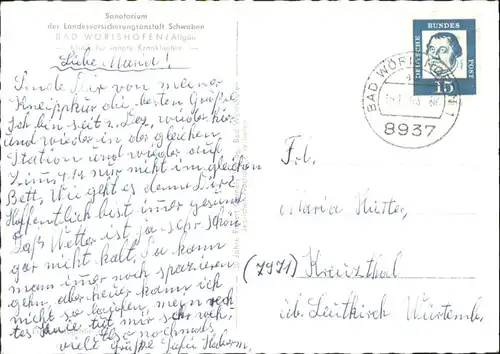 Sanatorium
der Landesversicherungsanstalt Schwaben
BAD WÖRISHOFEN/Allgäu
Klinik für innere Krankheiten
DEUTSCHE BUNDES POST
15
BAD WÖRISHOFEN 1
8937
Liebe
Sende Dir von meiner
Kneippkur die besten Grüße
Ich bin seit 2. Dez. wieder hier
und wieder in der gleichen
Station und wieder auf
nur nicht im gleichen
Bett, Wie geht es denn Dir?
Hoffentlich bist immer gesund
Das Wetter ist ja sehr schön
gar nicht kalt. Da kann
mann imer noch spazieren
gehn, aber heuer kann ich
nicht so laufen, mein rech
tes tut mir sehr weh,
Also nochmals
viele Grüße
Frl.
Maria Hutter,
(7971) Kreuzthal
üb. Leutkirch Würtemb.